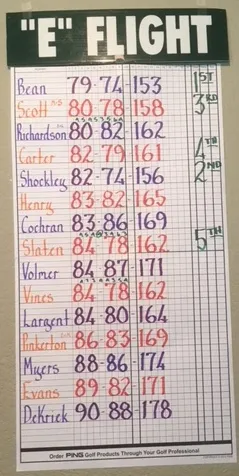 "E" FLIGHT
Bean 79-74-153 1ST
Scott 80 78-158 3RD
Richardson 80 82-162
Carter 82-79 161 4TH
Shockley 82-74-156 2ND
Henry 83-82-165
Cochran 83-86-169
Slaten 84-78 162 5TH
Volmer 84-87-171
Vines 84-78-162
Largent 84-80-164
Pinkerton 86-83-169
Myers 88-86-174
Evans 89-82-171
DeKrick 90-88-178
Order PING Golf Products Through Your Golf Professional